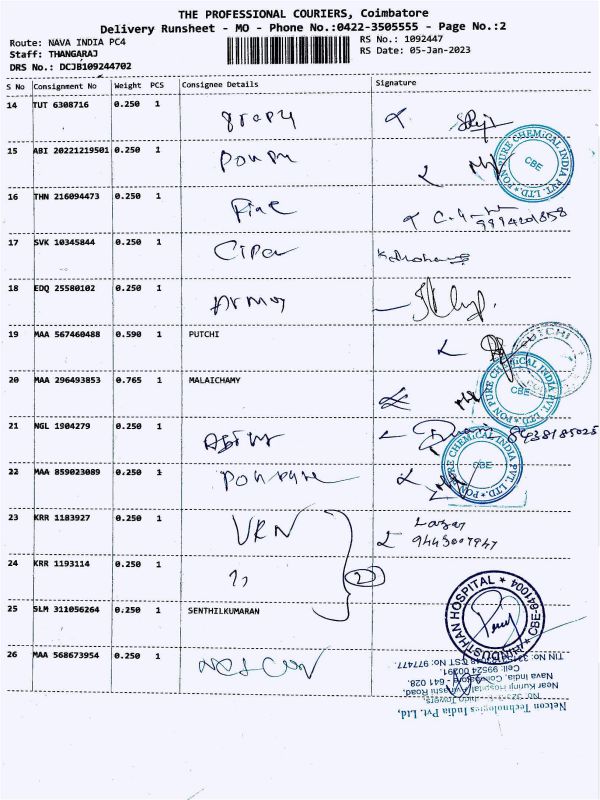 THE PROFESSIONAL COURIERS, Coimbatore
Delivery Runsheet - MO - Phone No.:0422-3505555 - Page No.:2
Route: NAVA INDIA PC4
RS No.: 1092447
Staff: THANGARAJ
RS Date: 05-Jan-2023
DRS No.: DCJB109244702
S No Consignment No Weight PCS Consignee Details Signature
14 TUT 6308716 0.250 1
15 ABI 20221219501 0.250 1
PON PURE CHEMICAL INDIA PVT. LTD. CBE
16 THN 216094473 0.250 1
9994201858
17 SVK 10345844 0.250 1 Cipa
18 EDQ 25580102 0.250 1
19 MAA 567460488 0.590 1 PUTCHI
20 MAA 296493853 0.765 1 MALAICHAMY
PON PURE CHEMICAL INDIA PVT. LTD. CBE
21 NGL 1904279 0.250 1
8438185025
22 MAA 859023089 0.250 1 Ponpure
PURE CHEMICAL INDIA PVT. LTD. CBE
23 KRR 1183927 0.250 1 VKN
9443007947
24 KRR 1193114 0.250 1 "
2
25 SLM 311056264 0.250 1 SENTHILKUMARAN
HINDUSTHAN HOSPITAL CBE-641004
26 MAA 568673954 0.250 1 Netcon
Netcon Technologies India Pvt. Ltd,
Near Kuring Hospital, Avinashi Road,
Nava India, Coimbatore - 641 028.
Cell: 99524 00391.